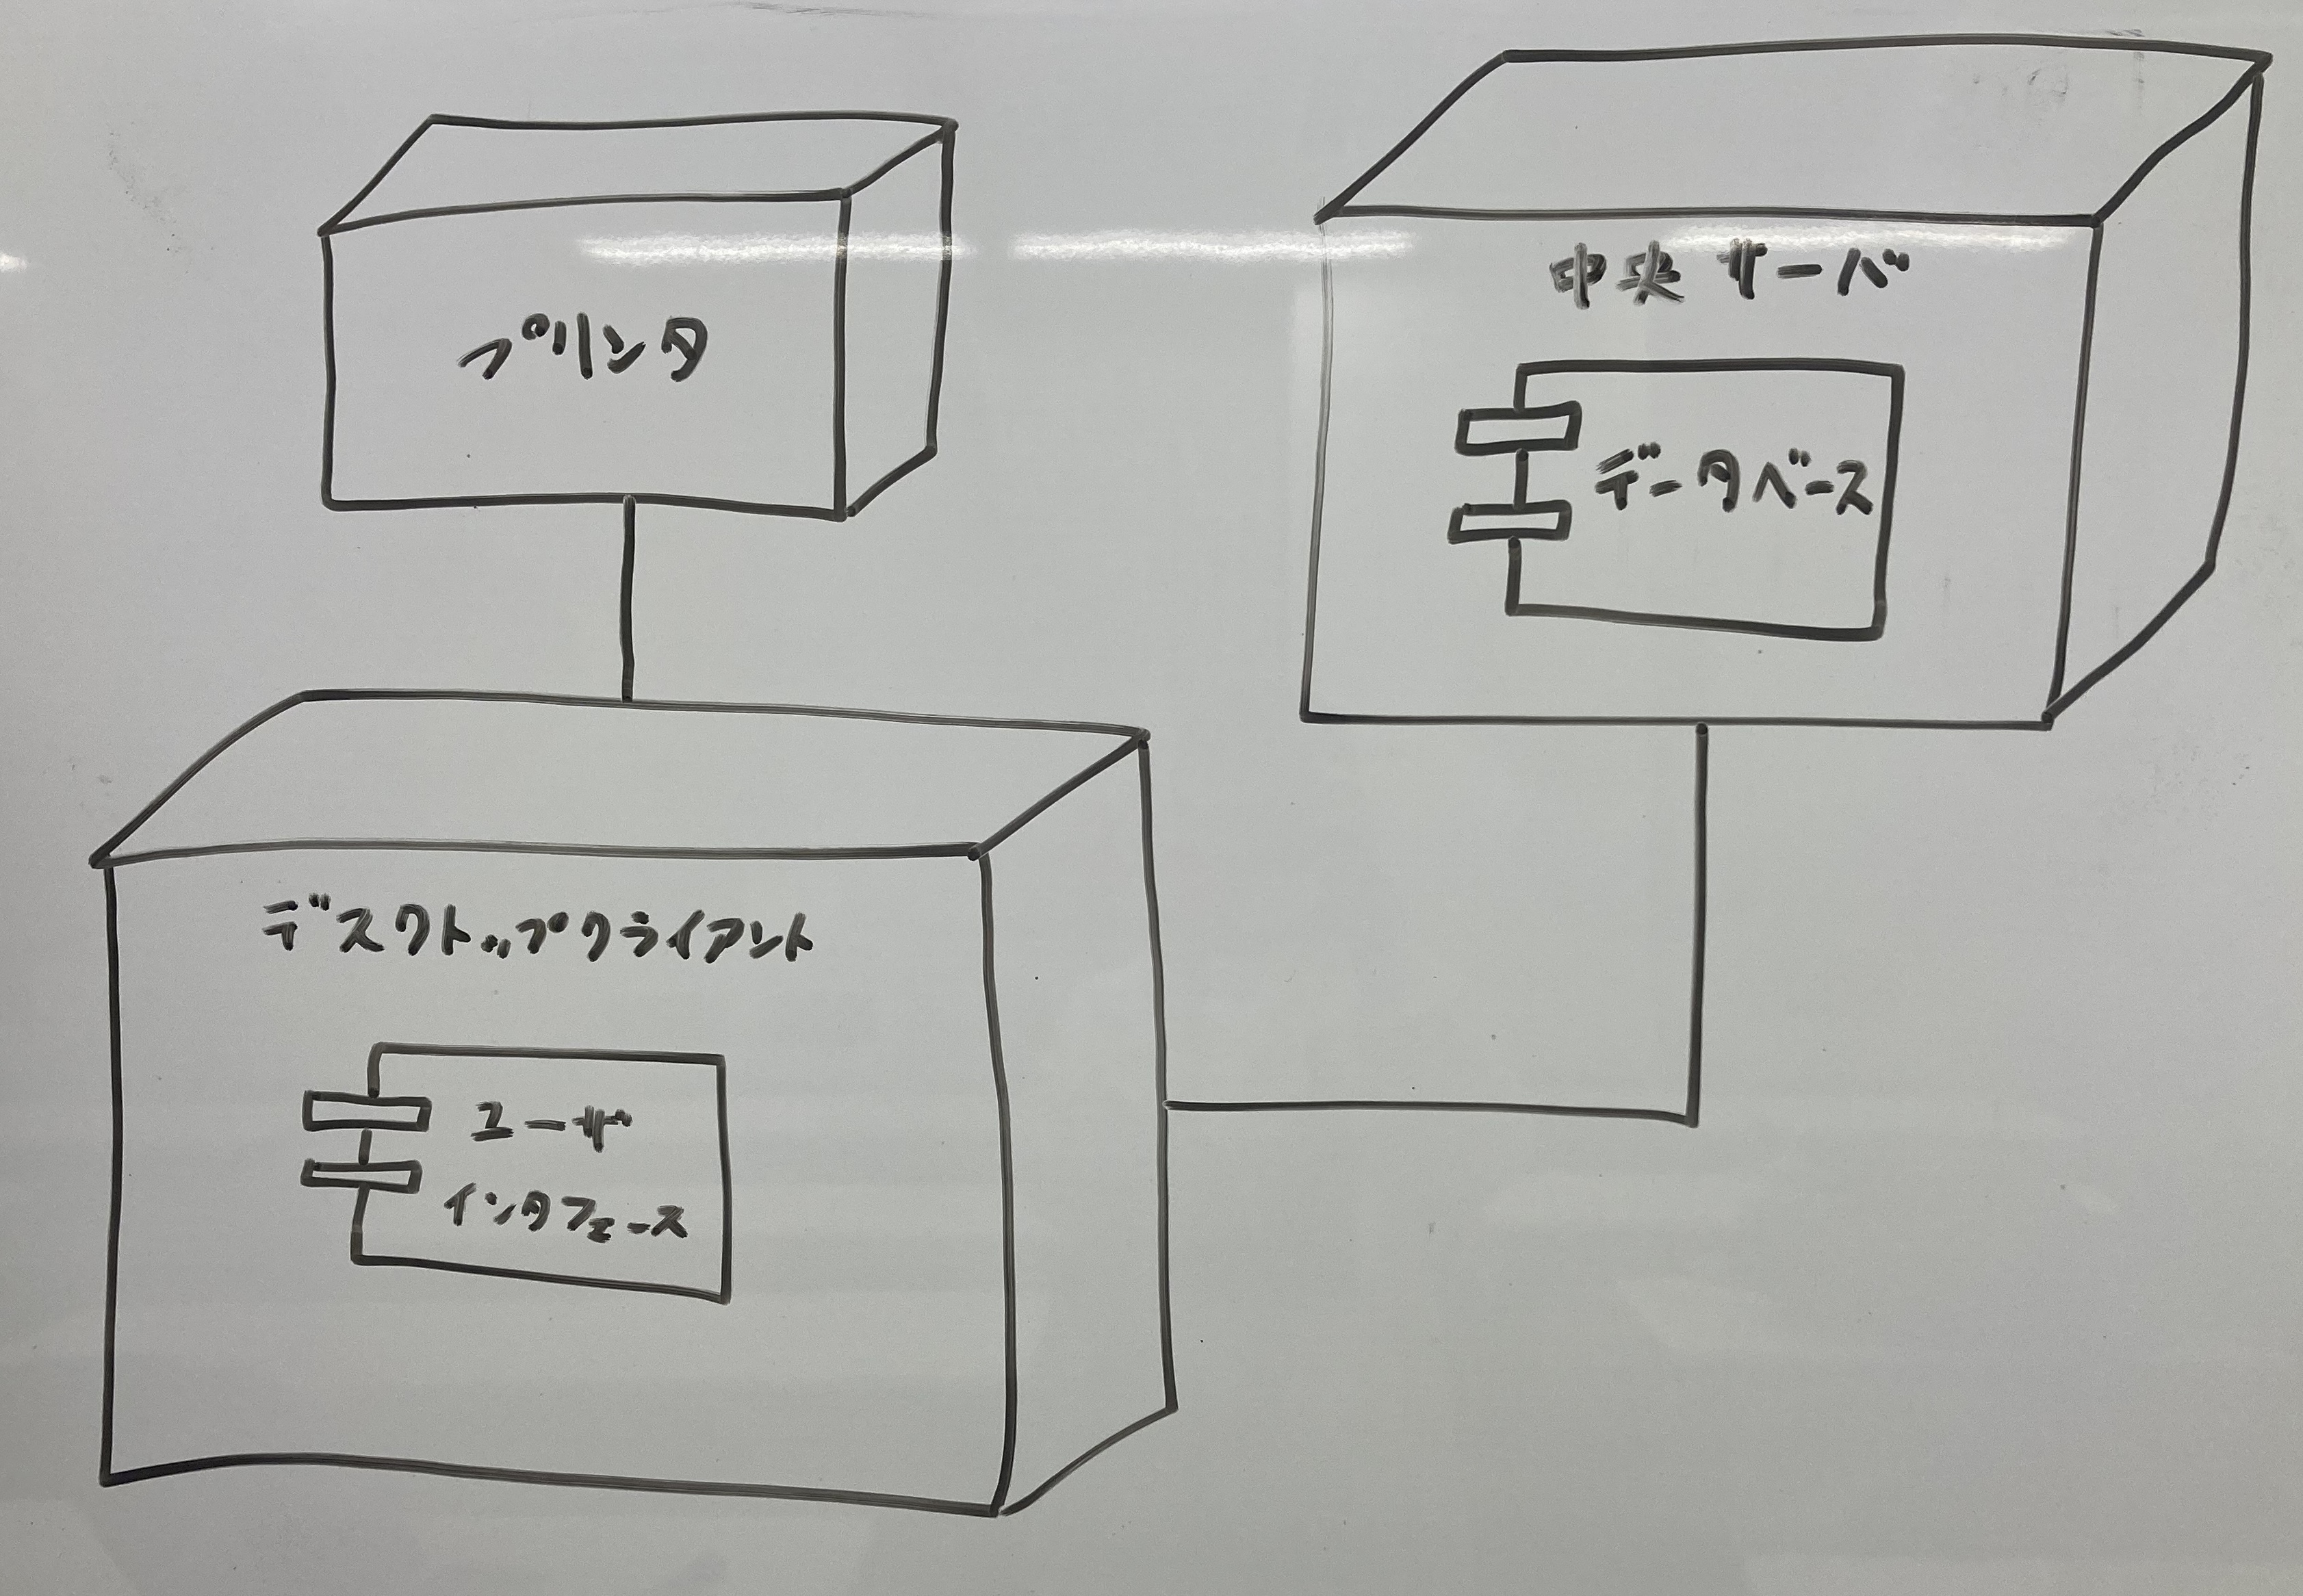 プリンタ
中央サーバ
データベース
デスクトップクライアント
ユーザ
インタフェース